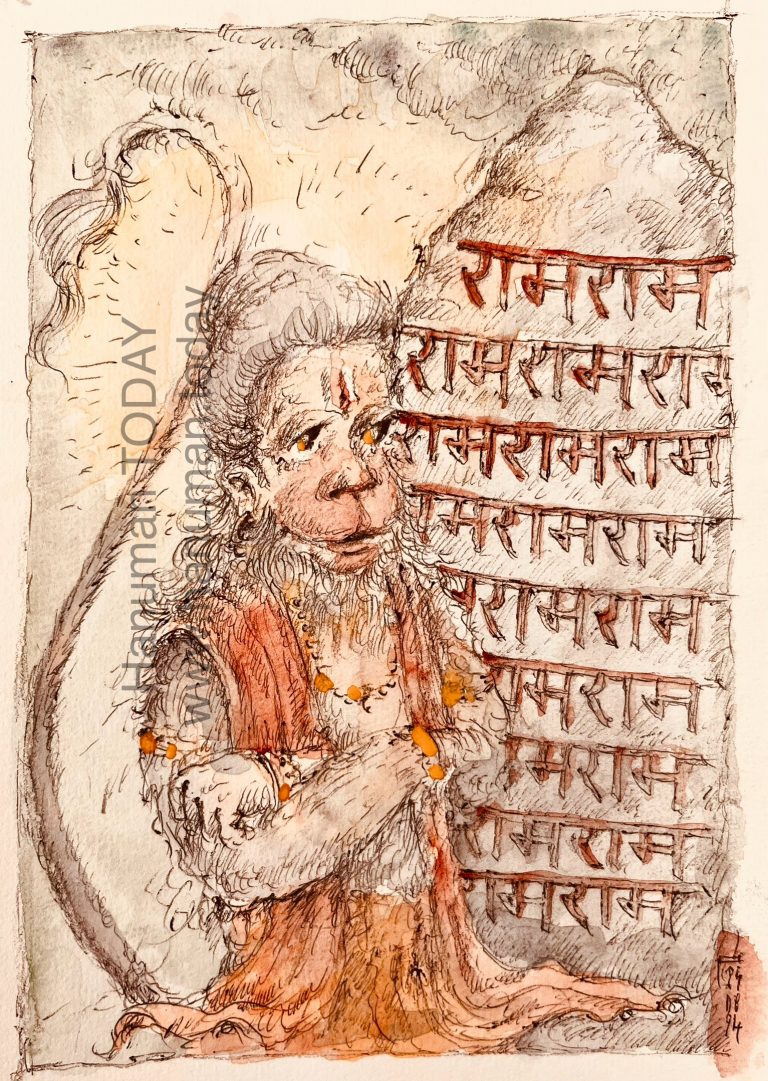 रामराम
रामरामराम
रामरामराम
मरामराम
मरामराम
रामराम
रामराम
रामराम
रामराम
Hanuman TODAY
www.hanuman.today